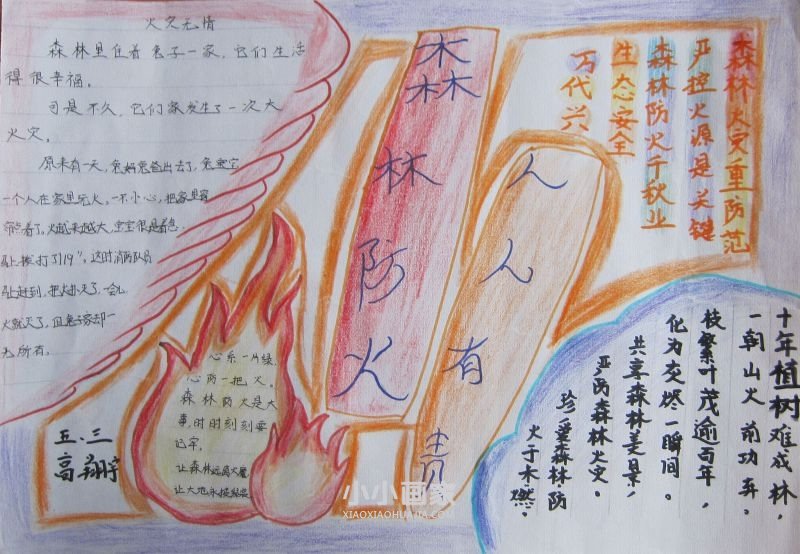 火灾无情
森林里住着兔子一家，它们生活
得很幸福。
可是不久，它们家发生了一次大
火灾。
原来有一天，兔妈兔爸出去了，兔宝宝
一个人在家里玩火，一不小心，把家里
着了，火越来越大，宝宝很是着急，
拨打了119"，这时消防队员
赶到，把火扑灭了，一会儿
火就灭了，但兔子家却一
无所有。
森林防火
人人有责
森林火灾重防范
严控火源是关键
森林防火千秋业
生态安全
万代兴
心系一片绿，
心防一把火。
森林防火是大
事，时时刻刻要
记牢，
让森林远离火魔
让大地永接绿装
五.三
高翔宇
十年植树难成林，
一朝山火前功弃。
枝繁叶茂逾百年，
化为灰烬一瞬间。
共享森林美景，
严防森林火灾。
珍重森林防
火于木燃。
小小画家
XIAOXIAOHUAJIA.COM